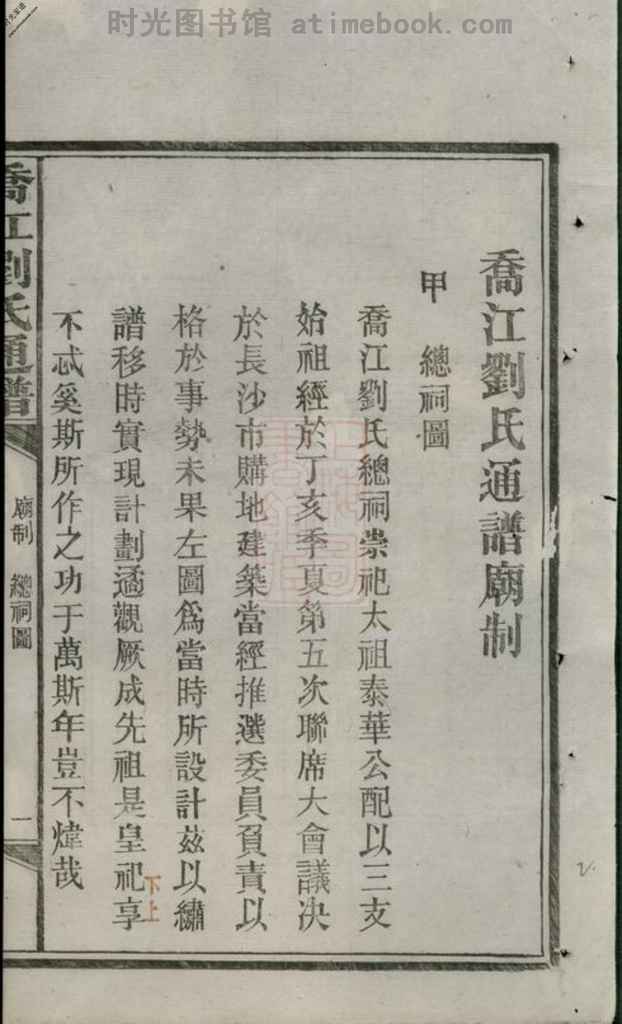 时光图书馆 atimebook.com
喬江劉氏通譜廟制
甲 總祠圖
喬江劉氏總祠崇祀太祖泰華公配以三支
始祖經於丁亥季夏第五次聯席大會議決
於長沙市購地建築當經推選委員負責以
格於事勢未果左圖爲當時所設計茲以繡
譜移時實現計劃遹觀厥成先祖是皇祀享
下上
不忒奚斯所作之功于萬斯年豈不煒哉
喬江劉氏通譜
廟制 總祠圖
一